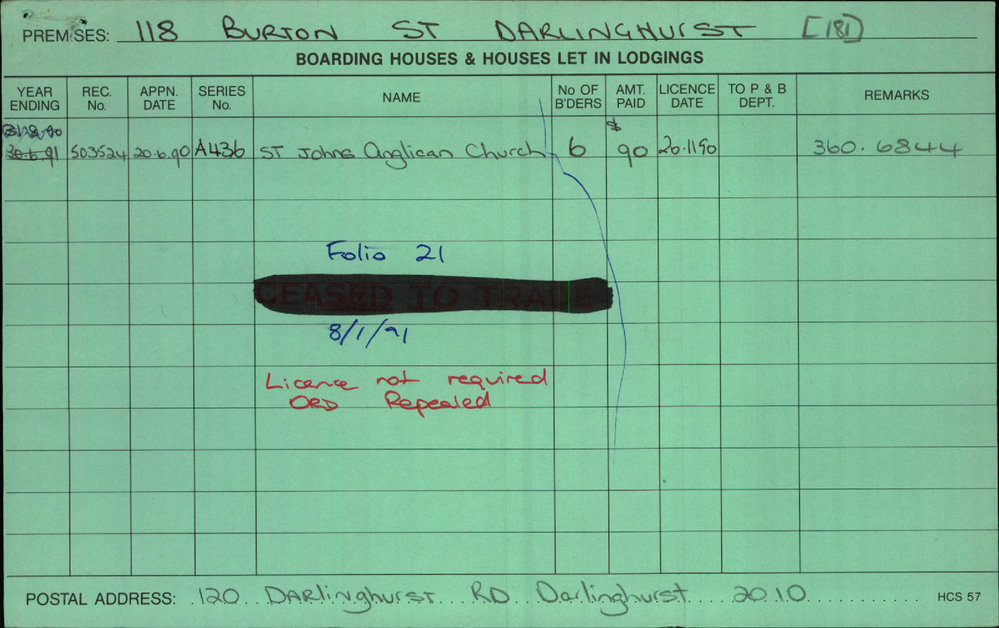 PREMISES: 118 BURTON ST DARLINGHURST [181]
BOARDING HOUSES & HOUSES LET IN LODGINGS
YEAR ENDING REC. No. APPN. DATE SERIES No. NAME No OF B'DERS AMT. PAID LICENCE DATE TO P & B DEPT. REMARKS
31.8.90 $
30.6.91 503524 20.6.90 A436 ST Johns Anglican Church 6 90 20.11.90 360.6844
Folio 21
CEASED TO TRADE
8/1/91
Licence not required
ORD Repealed
POSTAL ADDRESS: 120 DARlinghurst RD Darlinghurst 2010 HCS 57